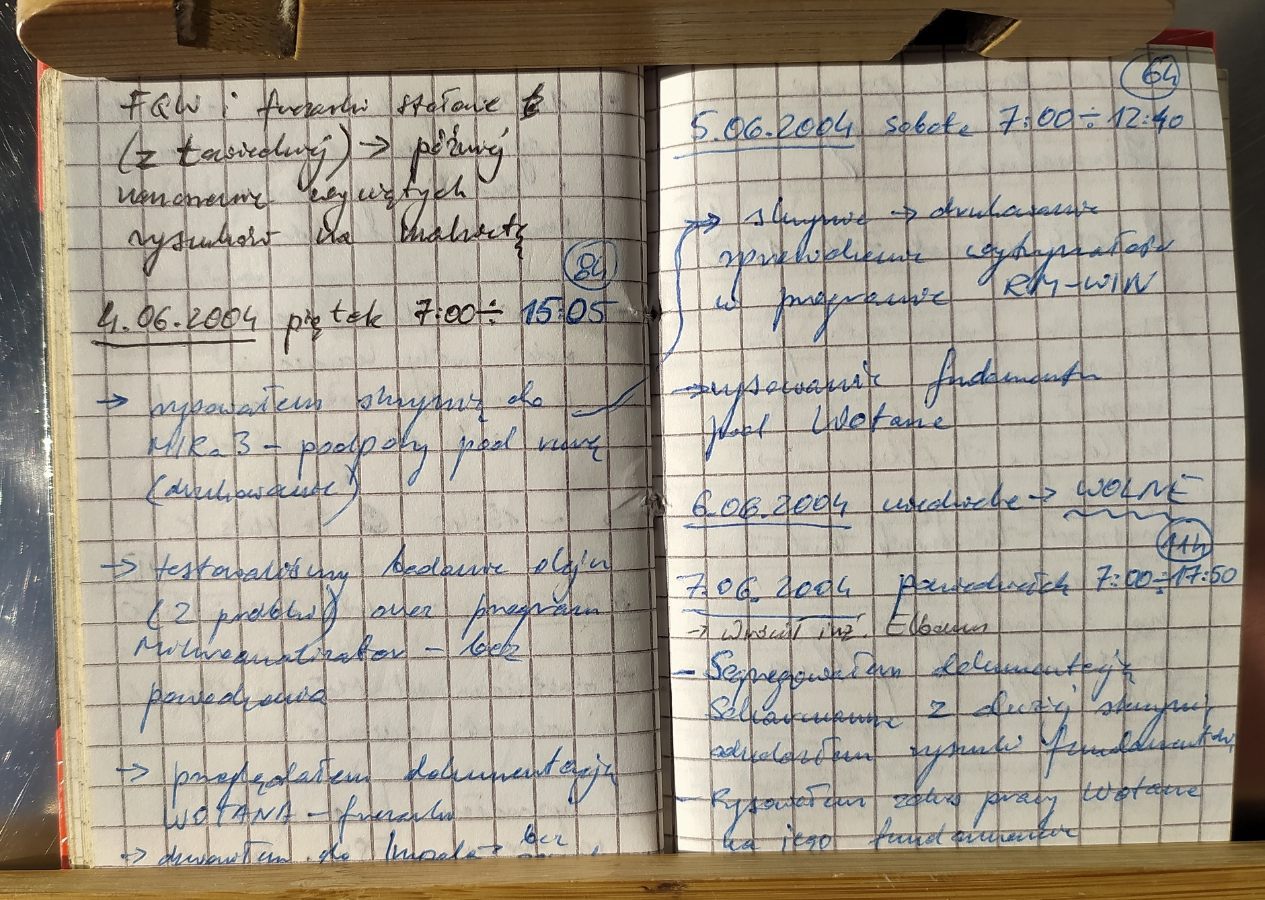 FQW i frezarki stołowe
(z ) → później
nanoszenie wyciętych
rysunków na makietę
8h
4.06.2004 piątek 7:00÷15:05
→ rysowałem skrzynię do
MIKa 3 – podpory pod rurę
(drukowanie)
→ testowaliśmy badanie oleju
(2 próbki) oraz program
Mikroanalizator – bez
powodzenia
→ przeglądałem dokumentację
WOTANA – frezarki
→ dzwoniłem do bez
6h
5.06.2004 sobota 7:00÷12:40
→ skrzynie → drukowanie
sprawdzenie wytrzymałości
w programie RM-WIN
→ rysowanie fundamentu
pod Wotana
6.06.2004 niedziela → WOLNE
11h
7.06.2004 poniedziałek 7:00÷17:50
→ Wrócił inż. Elbaum
– Segregowałem dokumentację
z dużej skrzyni,
rysunki fundamentów,
– Rysowałem zakres pracy Wotana
na jego fundamencie